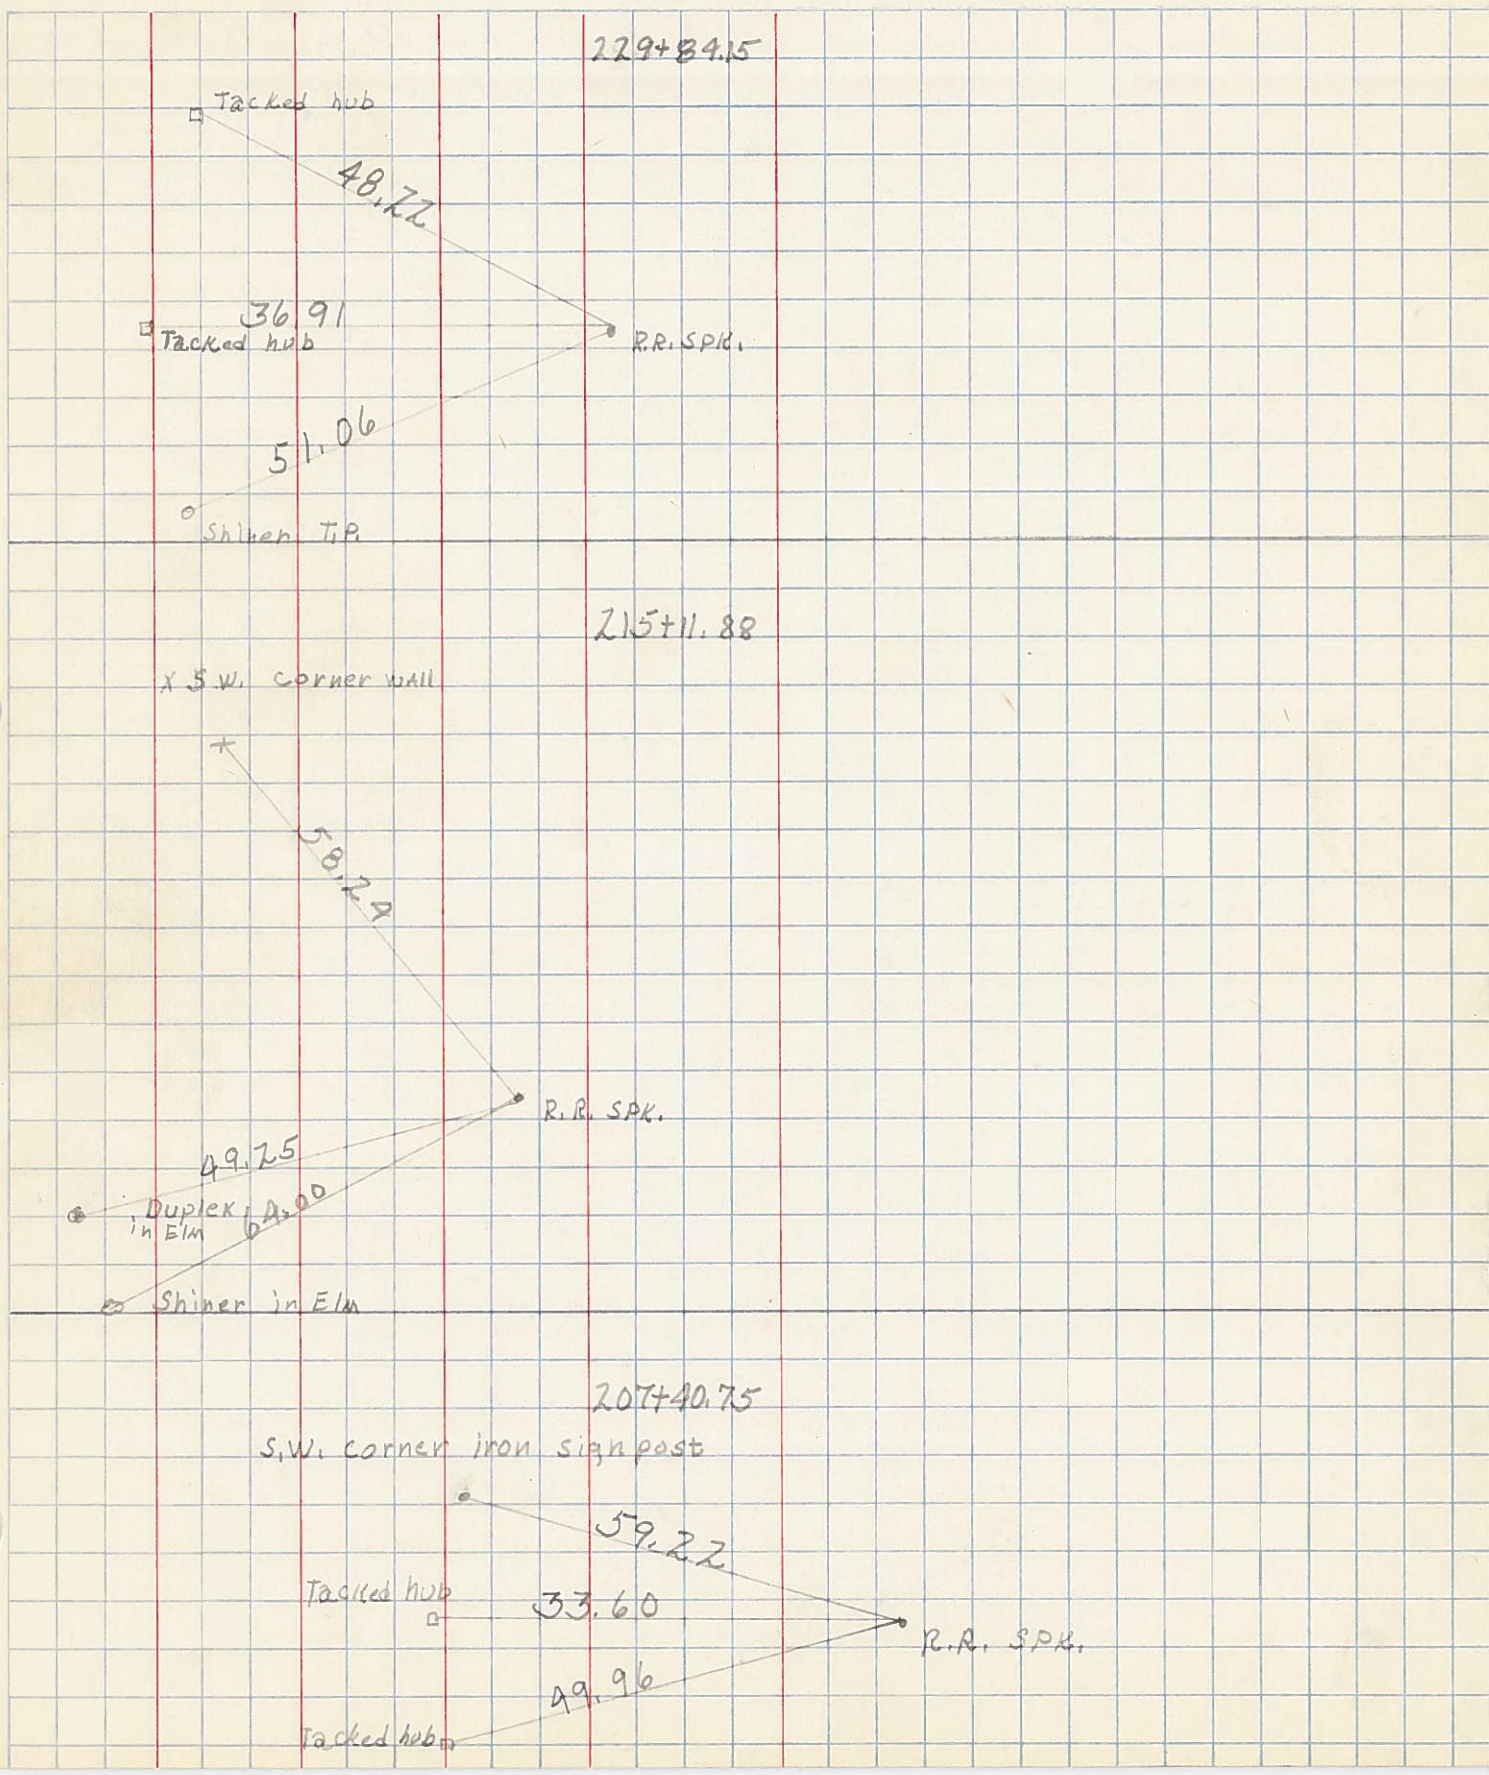 229+84.15
Tacked hub
48.22
36.91
Tacked hub
R.R. SPK.
51.06
Shiner T.P.
215+11.88
X S.W. corner wall
58.24
R.R. SPK.
49.25
Duplex
in Elm
64.00
Shiner in Elm
207+40.75
S.W. corner iron sign post
59.22
Tacked hub
33.60
R.R. SPK.
49.96
Tacked hub